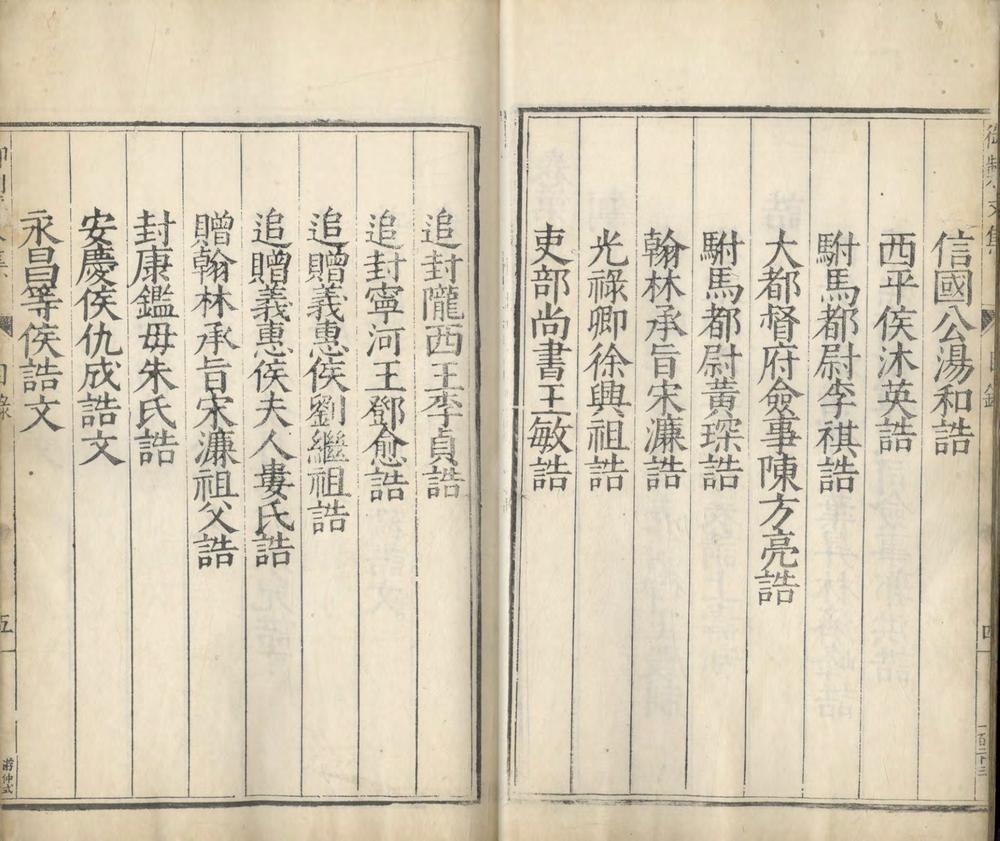 御製文集 目錄 四 一百二十三
信國公湯和誥
西平侯沐英誥
駙馬都尉李祺誥
大都督府僉事陳方亮誥
駙馬都尉黃琛誥
翰林承旨宋濂誥
光祿卿徐興祖誥
吏部尚書王敏誥
追封隴西王李貞誥
追封寧河王鄧愈誥
追贈義惠侯劉繼祖誥
追贈義惠侯夫人婁氏誥
贈翰林承旨宋濂祖父誥
封康鑑母朱氏誥
安慶侯仇成誥文
永昌等侯誥文
御製文集 目錄 五